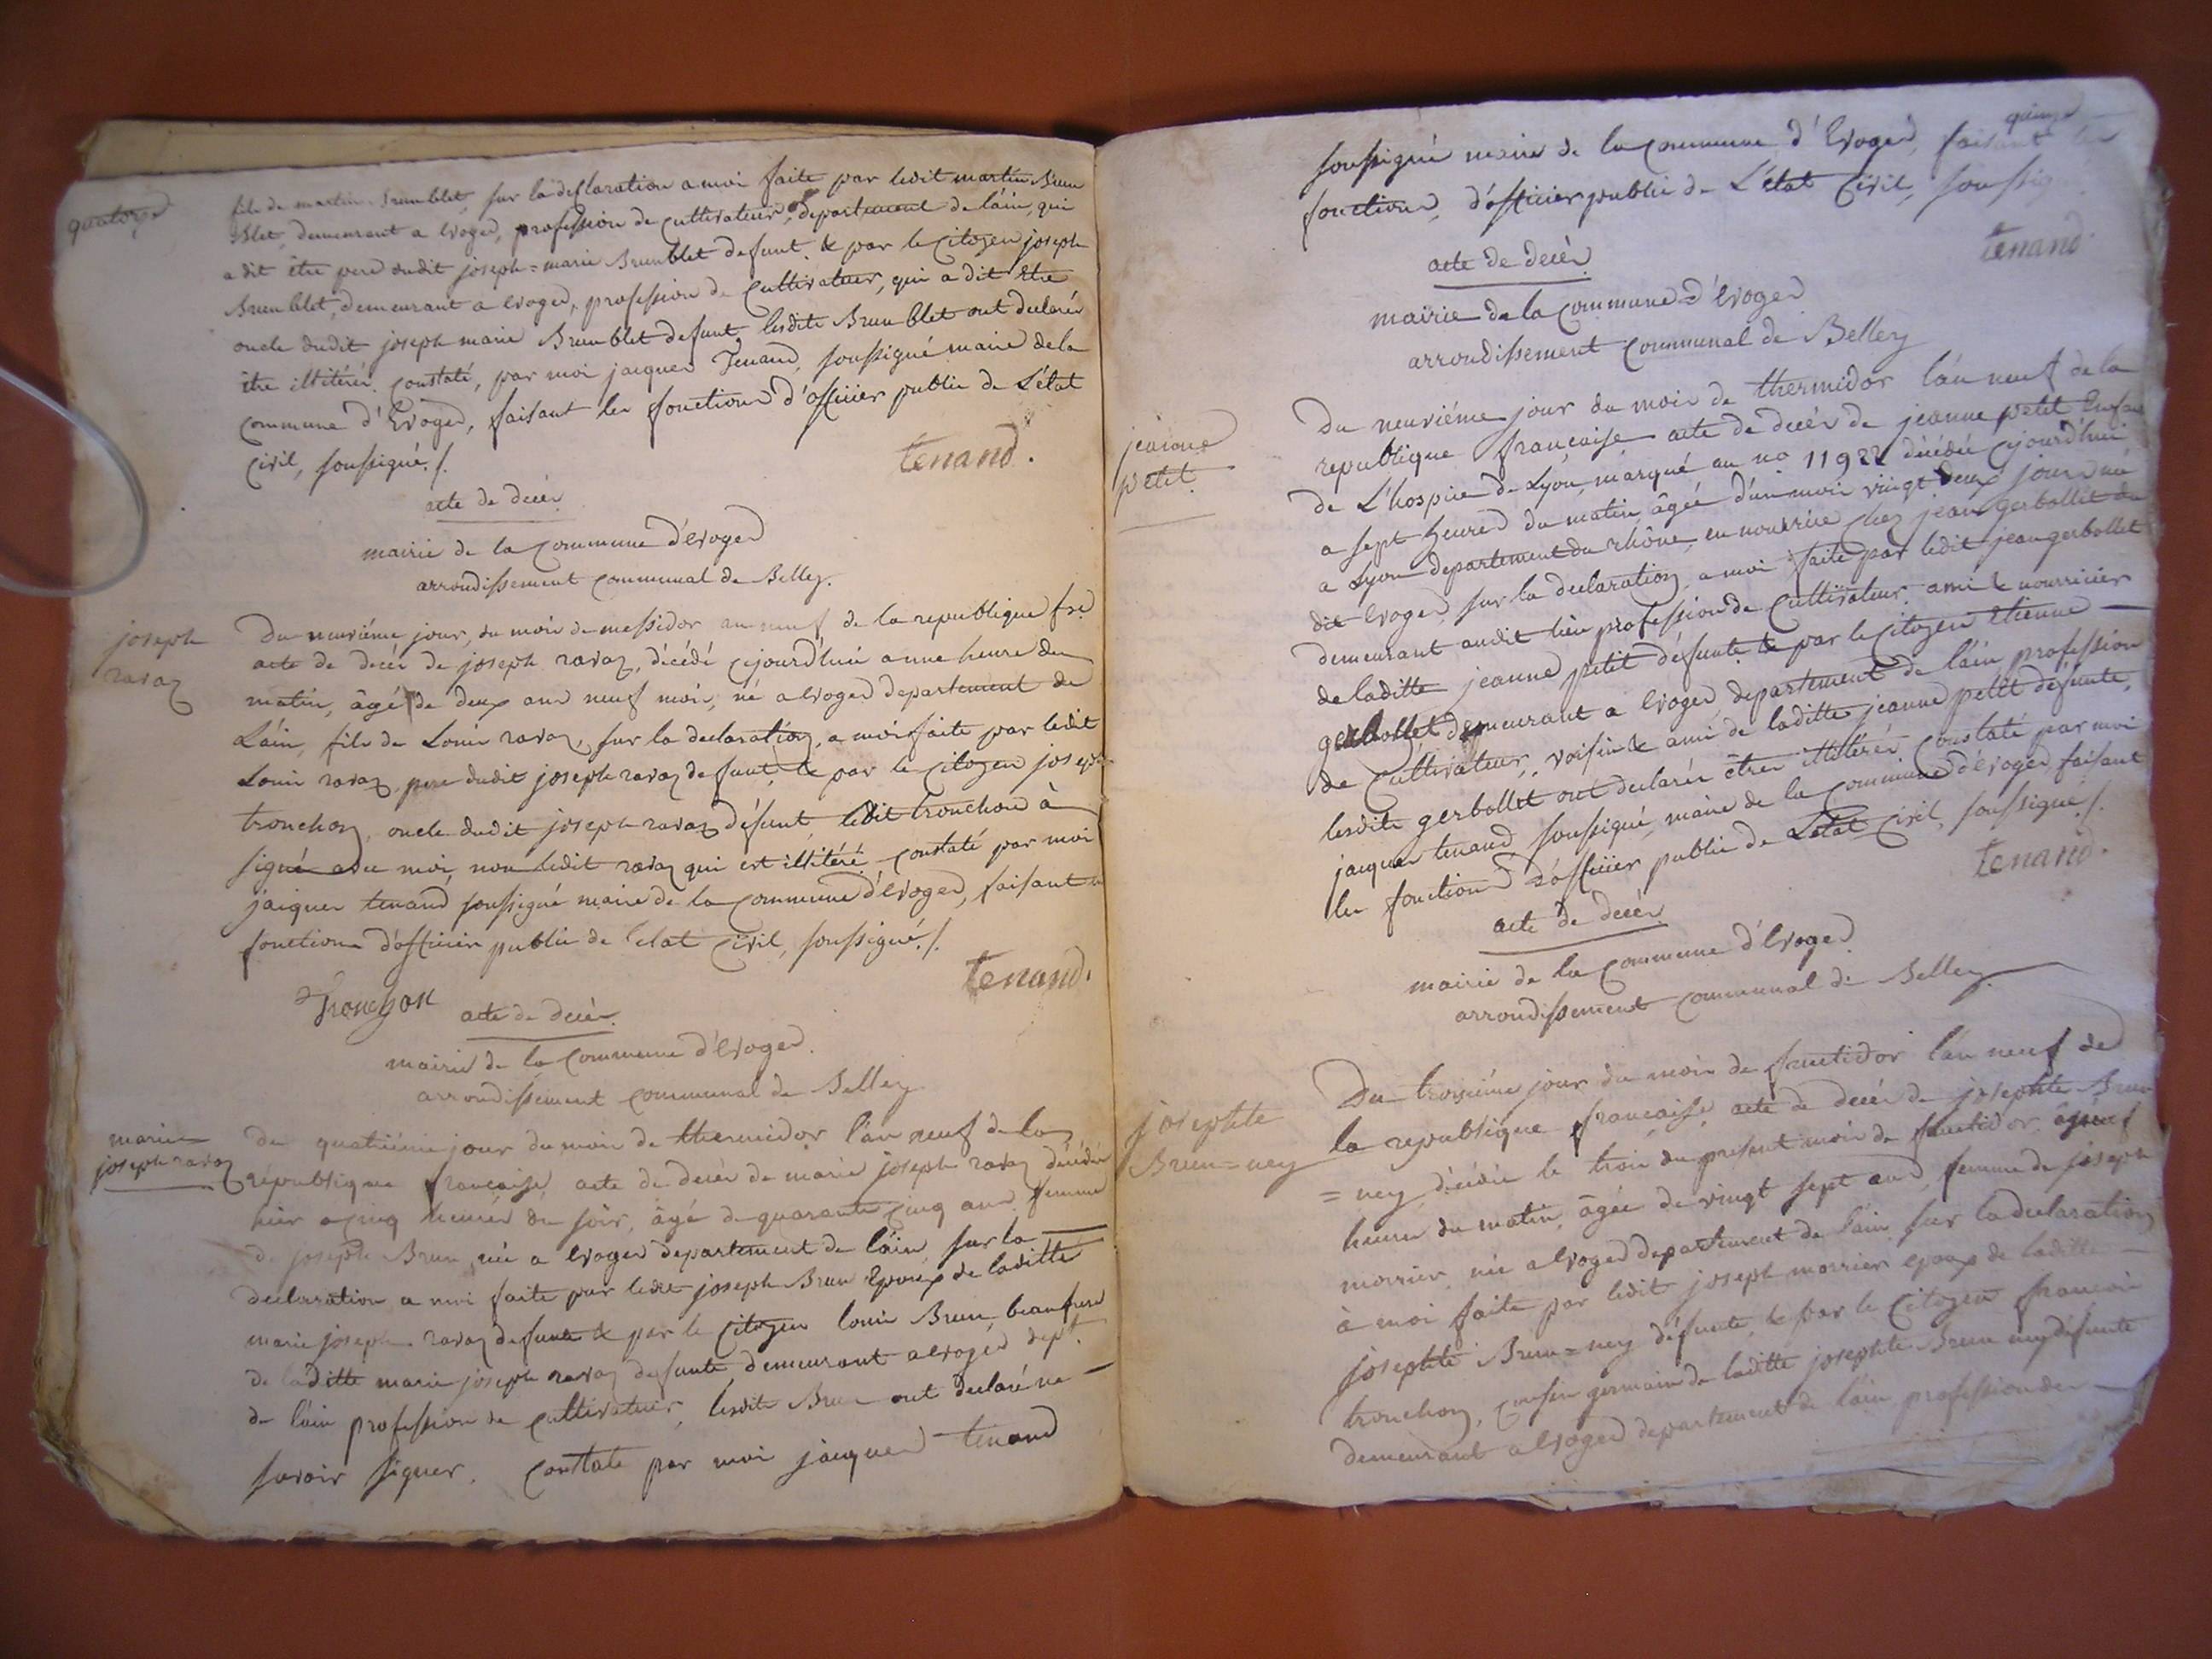 quatorze
fils de martin Brun blet, sur la declaration a moi faite par ledit martin Brun
Blet, demeurant a Evoges, profession de cultivateur, departement de l'ain, qui
a dit être pere dudit joseph=marie Brun blet defunt, & par le Citoyen joseph
Brun blet, demeurant a Evoges, profession de Cultivateur, qui a dit Etre
oncle dudit joseph marie Brun blet defunt, lesdits Brun blet ont declarés
être illitérés, Constaté, par moi jacques Tenand, soussigné maire de la
Commune d'Evoges, faisant les fonctions d'officier public de L'état
Civil, soussigné ./.
tenand.
acte de decès
mairie de la Commune d'Evoges
arrondissement Communal de Belley.
joseph
ravaz
Du neuviéme jour, du mois de messidor an neuf de la republique frse
acte de decès de joseph ravaz, décédé cejourd'hui a une heure du
matin, âgé de deux ans neuf mois, né a Evoges departement de
L'ain, fils de Louis ravaz, sur la declaration, a moi faite par ledit
Louis ravaz, pere dudit joseph ravaz defunt, & par le Citoyen joseph
tronchon, oncle dudit joseph ravaz défunt, ledit tronchon à
signé avec moi, non ledit ravaz qui est illitéré Constaté par moi
jacques tenand soussigné maire de la Commune d'Evoges, faisant les
fonctions d'officier public de l'etat Civil, soussigné ./.
tronchon
tenand.
acte de decès.
mairie de la Commune d'Evoges.
arrondissement Communal de Belley
marie
joseph ravaz
du quatriéme jour du mois de thermidor l'an neuf de la
république française, acte de decès de marie joseph ravaz décédée
hier a cinq heures du soir, âgé de quarante Cinq ans femme
de joseph Brun, née a Evoges departement de l'ain, sur la
declaration a moi faite par ledit joseph Brun Epoux de laditte
marie joseph ravaz defunte & par le Citoyen louis Brun, beaufrere
de laditte marie joseph ravaz defunte, demeurant a Evoges dept.
de l'ain profession de Cultivateur, lesdits Brun ont declaré ne
savoir signer. Constaté par moi jacques tenand
quinze
soussigné maire de la Commune d'Evoges, faisant les
fonctions, d'officier public de L'état Civil, soussig
tenand.
acte de decès
mairie de la Commune d'Evoges
arrondissement Communal de Belley
jeanne
petit.
Du neuviéme jour du mois de thermidor l'an neuf de la
republique française acte de decès de jeanne petit Enfant
de L'hospice de Lyon, marqué au no 11922 décédée cejourd'hui
a sept heures du matin, âgée d'un mois vingt deux jours née
a Lyon departement du rhône, en nourrice chez jean gerbollet du
dit Evoges, sur la declaration, a moi faite par ledit jean gerbollet
demeurant audit lieu profession de Cultivateur, ami & nourricier
de laditte jeanne petit défunte & par le Citoyen Etienne
gerbollet demeurant a Evoges departement de l'ain profession
de Cultivateur, voisin & ami de laditte jeanne petit défunte,
lesdits gerbollet ont declarés être illitérés, Constaté par moi
jacques tenand, soussigné, maire de la Commune d'Evoges faisant
les fonctions d'officier public de L'état Civil, soussigné ./.
tenand.
acte de decès
mairie de la Commune d'Evoges
arrondissement Communal de Belley
josephte
Brun=ney
Du troisiéme jour du mois de fructidor l'an neuf de
la republique française, acte de decès de josephte Brun
=ney, décédée le trois du present mois de fructidor, a neuf
heures du matin, âgée de vingt sept ans, femme de joseph
morrier, née a Evoges departement de l'ain, sur la declaration
à moi faite par ledit joseph morrier epoux de laditte
josephte Brun=ney défunte, & par le Citoyen françois
tronchon, Cousin germain de laditte josephte Brun ney défunte
demeurant a Evoges departement de l'ain profession de